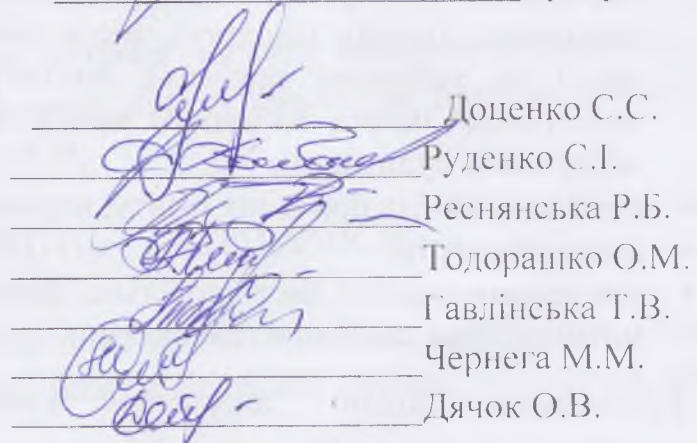 Доценко С.С.
Руденко С.І.
Реснянська Р.Б.
Тодорашко О.М.
Гавлінська Т.В.
Чернега М.М.
Дячок О.В.